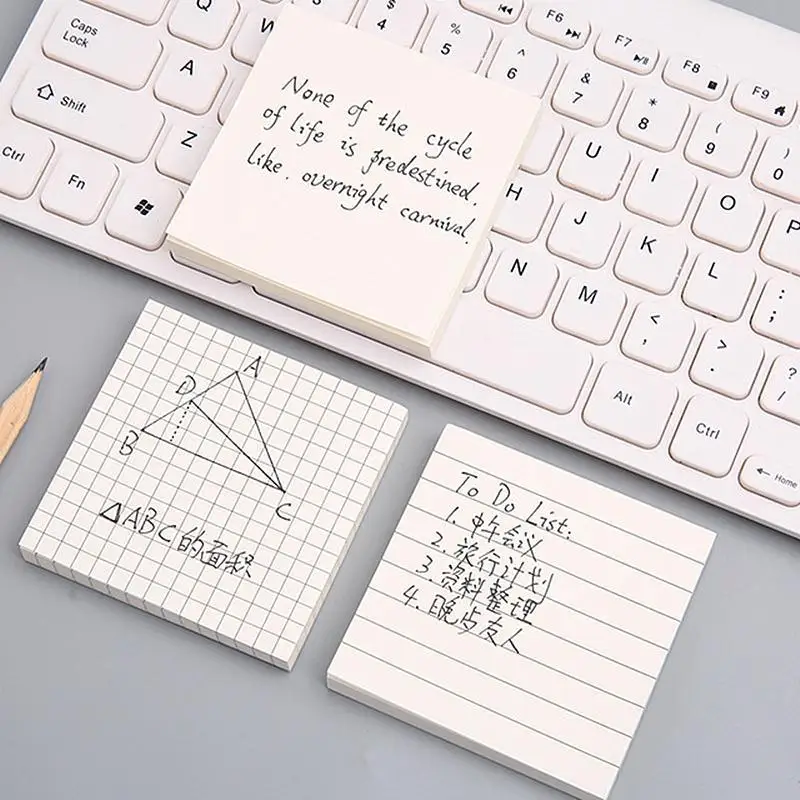 $ 4
% 5
^ 6
& 7
* 8
( 9
) 0
F6
F7
F8
F9
Caps Lock
Q
W
A
U
I
O
P
Shift
Z
H
J
K
L
: ;
Ctrl
Fn
N
M
< ,
> .
? /
Alt
Ctrl
Home
None of the cycle
of life is predestined.
like. overnight carnival.
A
D
B
C
△ABC的面积
To Do List:
1. 中午会议
2. 旅行计划
3. 资料整理
4. 晚与友人